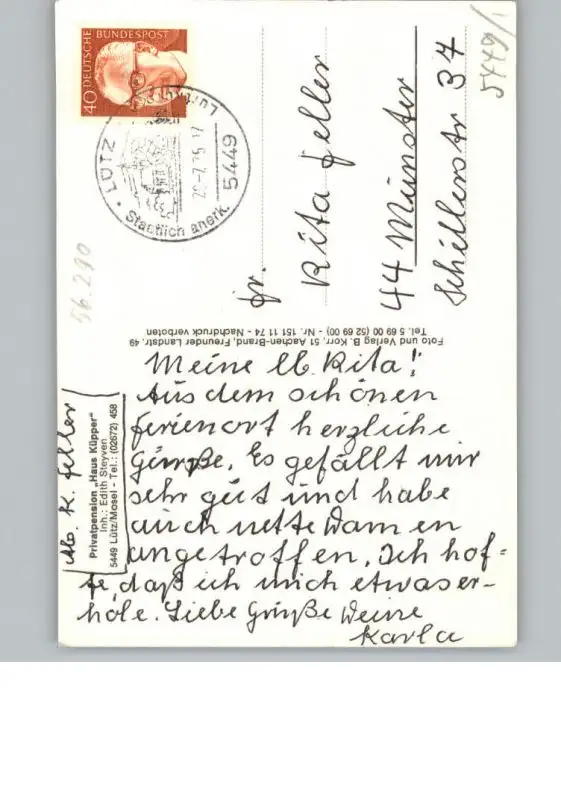 5449/1
56.290
DEUTSCHE BUNDESPOST
40
LÜTZ
Luftkurort
Staatlich anerk.
5449
Fr.
Rita Feller
44 Münster
Schillerstr 37
Foto und Verlag B. Korr, 51 Aachen-Brand, Freunder Landstr. 49
Tel. 5 69 00 (52 69 00) - Nr. 151 11 74 - Nachdruck verboten
Ab. K. Feller
Privatpension „Haus Küpper"
Inh.: Edith Steyven
5449 Lütz/Mosel - Tel.: (02672) 458
Meine lb. Rita!
Aus dem schönen
Ferienort herzliche
Grüße. Es gefällt mir
sehr gut und habe
auch nette Damen
angetroffen. Ich hof=
fe, daß ich mich etwas er-
hole. Liebe Grüße Deine
Karla